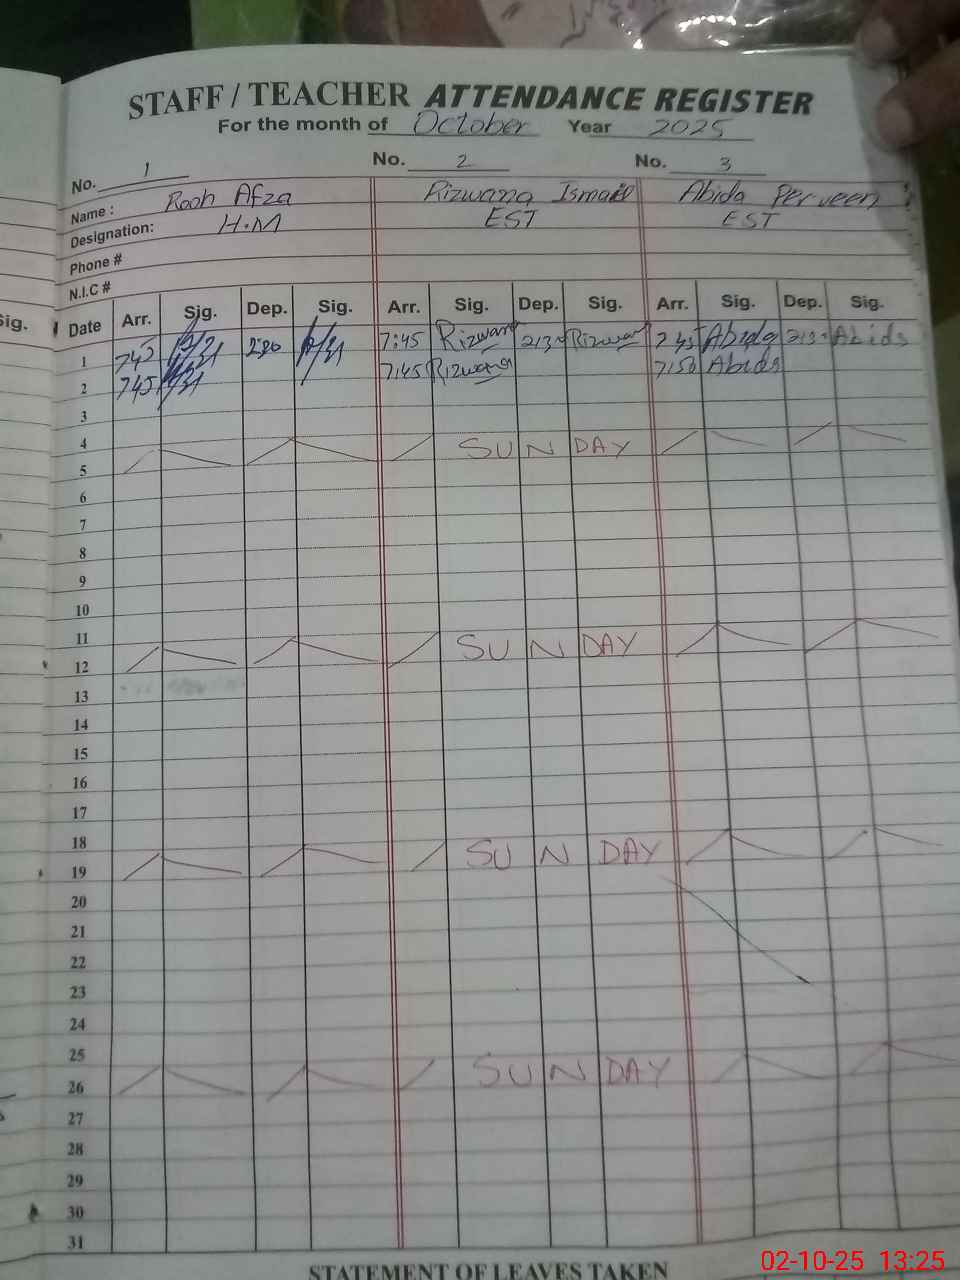 STAFF / TEACHER ATTENDANCE REGISTER
For the month of October Year 2025
No. 1 No. 2 No. 3
Name : Rooh Afza Rizwana Ismail Abida Perveen
Designation: H.M EST EST
Phone #
N.I.C #
Sig.
Date Arr. Sig. Dep. Sig. Arr. Sig. Dep. Sig. Arr. Sig. Dep. Sig.
1 745 7:45 Rizwana 213 Rizwana 7 45 Abida 213 Abids
2 745 7:45 Rizwana 7:50 Abids
3
4
5 SUNDAY
6
7
8
9
10
11
12 SUNDAY
13
14
15
16
17
18
19 SUNDAY
20
21
22
23
24
25
26 SUNDAY
27
28
29
30
31
STATEMENT OF LEAVES TAKEN
02-10-25 13:25